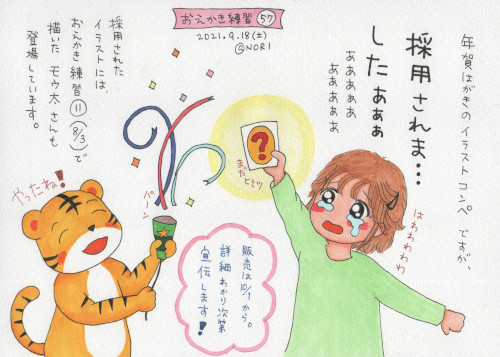 おえかき練習 57
2021.9.18(土)
@NORI
年賀はがきのイラストコンペですが、
採用されま…
したあぁぁ
あああああ
ぁぁぁぁぁ
採用された
イラストには、
おえかき練習⑪(8/3)で
描いた モウ太さんも
登場しています。
?
まだヒミツ
はわわわわわ
やったね!
パーン
販売は10/1から。
詳細わかり次第
宣伝します!